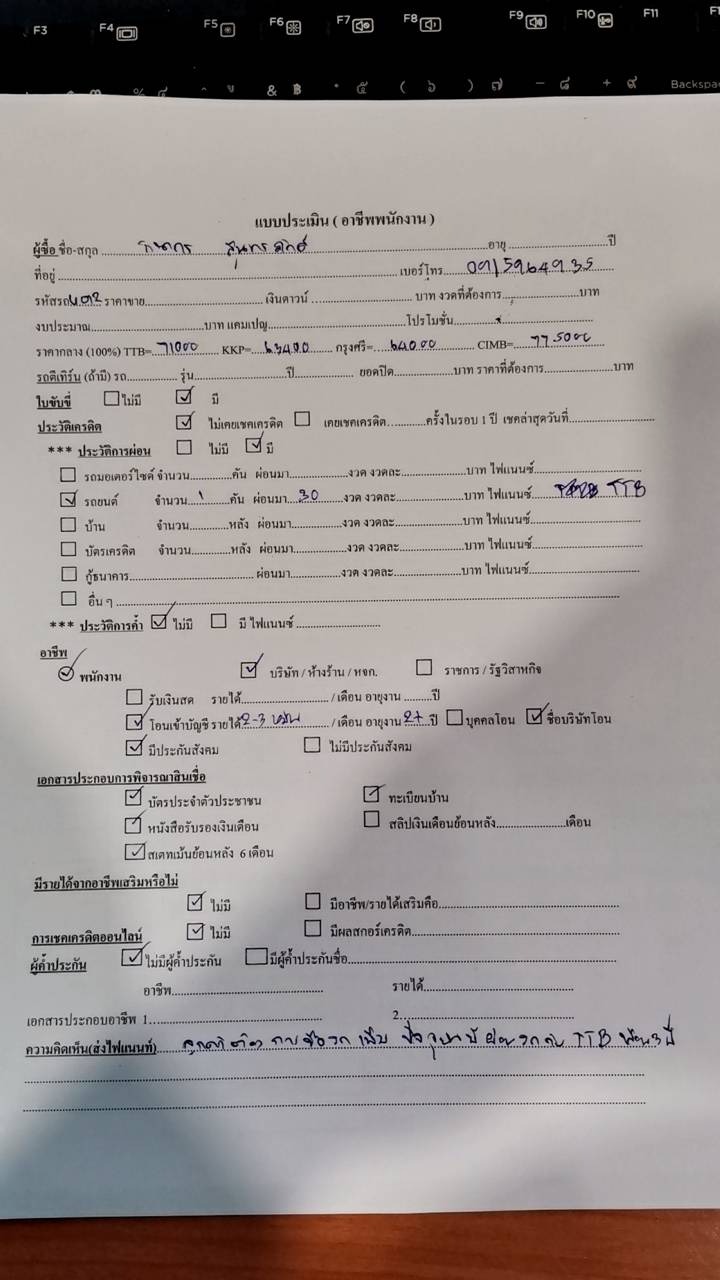 F3 F4 F5 F6 F7 F8 F9 F10 F11
& ฿ ๕ ( ๖ ) ๗ - ๘ + ๙ Backspa
แบบประเมิน ( อาชีพพนักงาน )
ผู้ซื้อ ชื่อ-สกุล อายุ ปี
ที่อยู่ เบอร์โทร 0915964935
รหัสรถ ราคาขาย เงินดาวน์ บาท งวดที่ต้องการ บาท
งบประมาณ บาท แคมเปญ โปรโมชั่น
ราคากลาง (100%) TTB= 71000 KKP= 63400 กรุงศรี= 64000 CIMB= 77500
รถตีเทิร์น (ถ้ามี) รถ รุ่น ปี ยอดปิด บาท ราคาที่ต้องการ บาท
ใบขับขี่ ไม่มี มี
ประวัติเครดิต ไม่เคยเชคเครดิต เคยเชคเครดิต ครั้งในรอบ 1 ปี เชคล่าสุดวันที่
*** ประวัติการผ่อน ไม่มี มี
รถมอเตอร์ไซค์ จำนวน คัน ผ่อนมา งวด งวดละ บาท ไฟแนนซ์
รถยนต์ จำนวน 1 คัน ผ่อนมา 30 งวด งวดละ บาท ไฟแนนซ์ TTB
บ้าน จำนวน หลัง ผ่อนมา งวด งวดละ บาท ไฟแนนซ์
บัตรเครดิต จำนวน หลัง ผ่อนมา งวด งวดละ บาท ไฟแนนซ์
กู้ธนาคาร ผ่อนมา งวด งวดละ บาท ไฟแนนซ์
อื่น ๆ
*** ประวัติการค้ำ ไม่มี มี ไฟแนนซ์
อาชีพ
พนักงาน บริษัท / ห้างร้าน / หจก. ราชการ / รัฐวิสาหกิจ
รับเงินสด รายได้ / เดือน อายุงาน ปี
โอนเข้าบัญชี รายได้ 2-3 หมื่น / เดือน อายุงาน 2+ ปี บุคคลโอน ชื่อบริษัทโอน
มีประกันสังคม ไม่มีประกันสังคม
เอกสารประกอบการพิจารณาสินเชื่อ
บัตรประจำตัวประชาชน ทะเบียนบ้าน
หนังสือรับรองเงินเดือน สลิปเงินเดือนย้อนหลัง เดือน
สเตทเม้นย้อนหลัง 6 เดือน
มีรายได้จากอาชีพเสริมหรือไม่
ไม่มี มีอาชีพ/รายได้เสริมคือ
การเชคเครดิตออนไลน์ ไม่มี มีผลสกอร์เครดิต
ผู้ค้ำประกัน ไม่มีผู้ค้ำประกัน มีผู้ค้ำประกันชื่อ
อาชีพ รายได้
เอกสารประกอบอาชีพ 1. 2.
ความคิดเห็น(ส่งไฟแนนท์) ลูกค้าต้องการซื้อรถเพิ่ม ปัจจุบันมีผ่อนรถกับ TTB 3 ปี